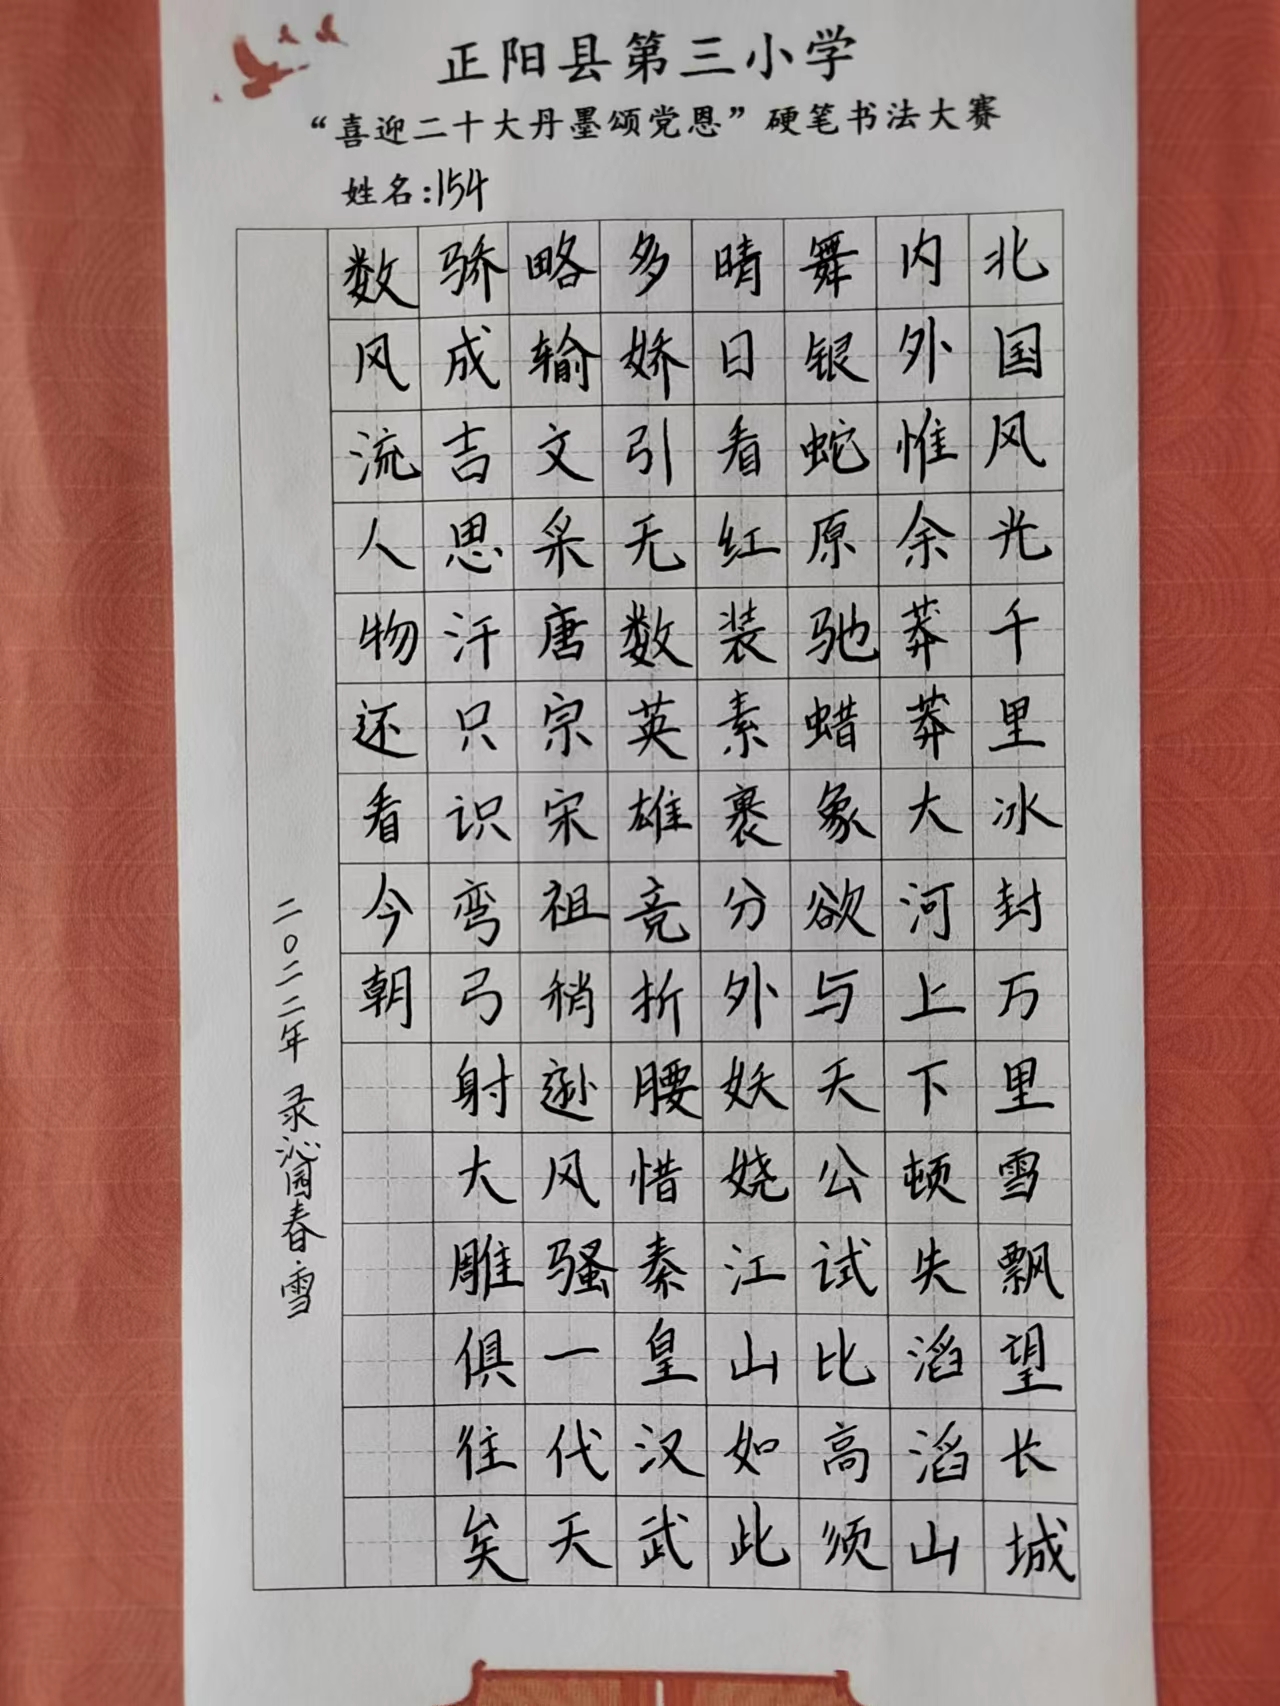 正阳县第三小学
“喜迎二十大丹墨颂党恩”硬笔书法大赛
姓名:154
北国风光千里冰封万里雪飘望长城
内外惟余莽莽大河上下顿失滔滔山
舞银蛇原驰蜡象欲与天公试比高须
晴日看红装素裹分外妖娆江山如此
多娇引无数英雄竞折腰惜秦皇汉武
略输文采唐宗宋祖稍逊风骚一代天
骄成吉思汗只识弯弓射大雕俱往矣
数风流人物还看今朝
二〇二二年 录沁园春雪